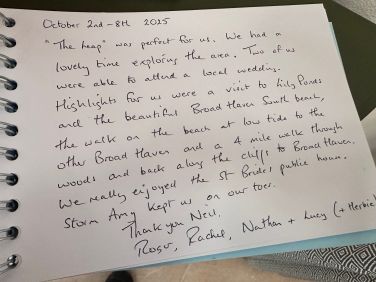 October 2nd-8th 2025
"The heap" was perfect for us. We had a
lovely time exploring the area. Two of us
were able to attend a local wedding.
Highlights for us were a visit to Lily Ponds
and the beautiful Broad Haven South beach,
the walk on the beach at low tide to the
other Broad Haven and a 4 mile walk through
woods and back along the cliffs to Broad Haven.
We really enjoyed the St Brides, public house.
Storm Amy kept us on our toes.
Thank you Neil,
Roger, Rachel, Nathan + Lucy (+ Herbie)